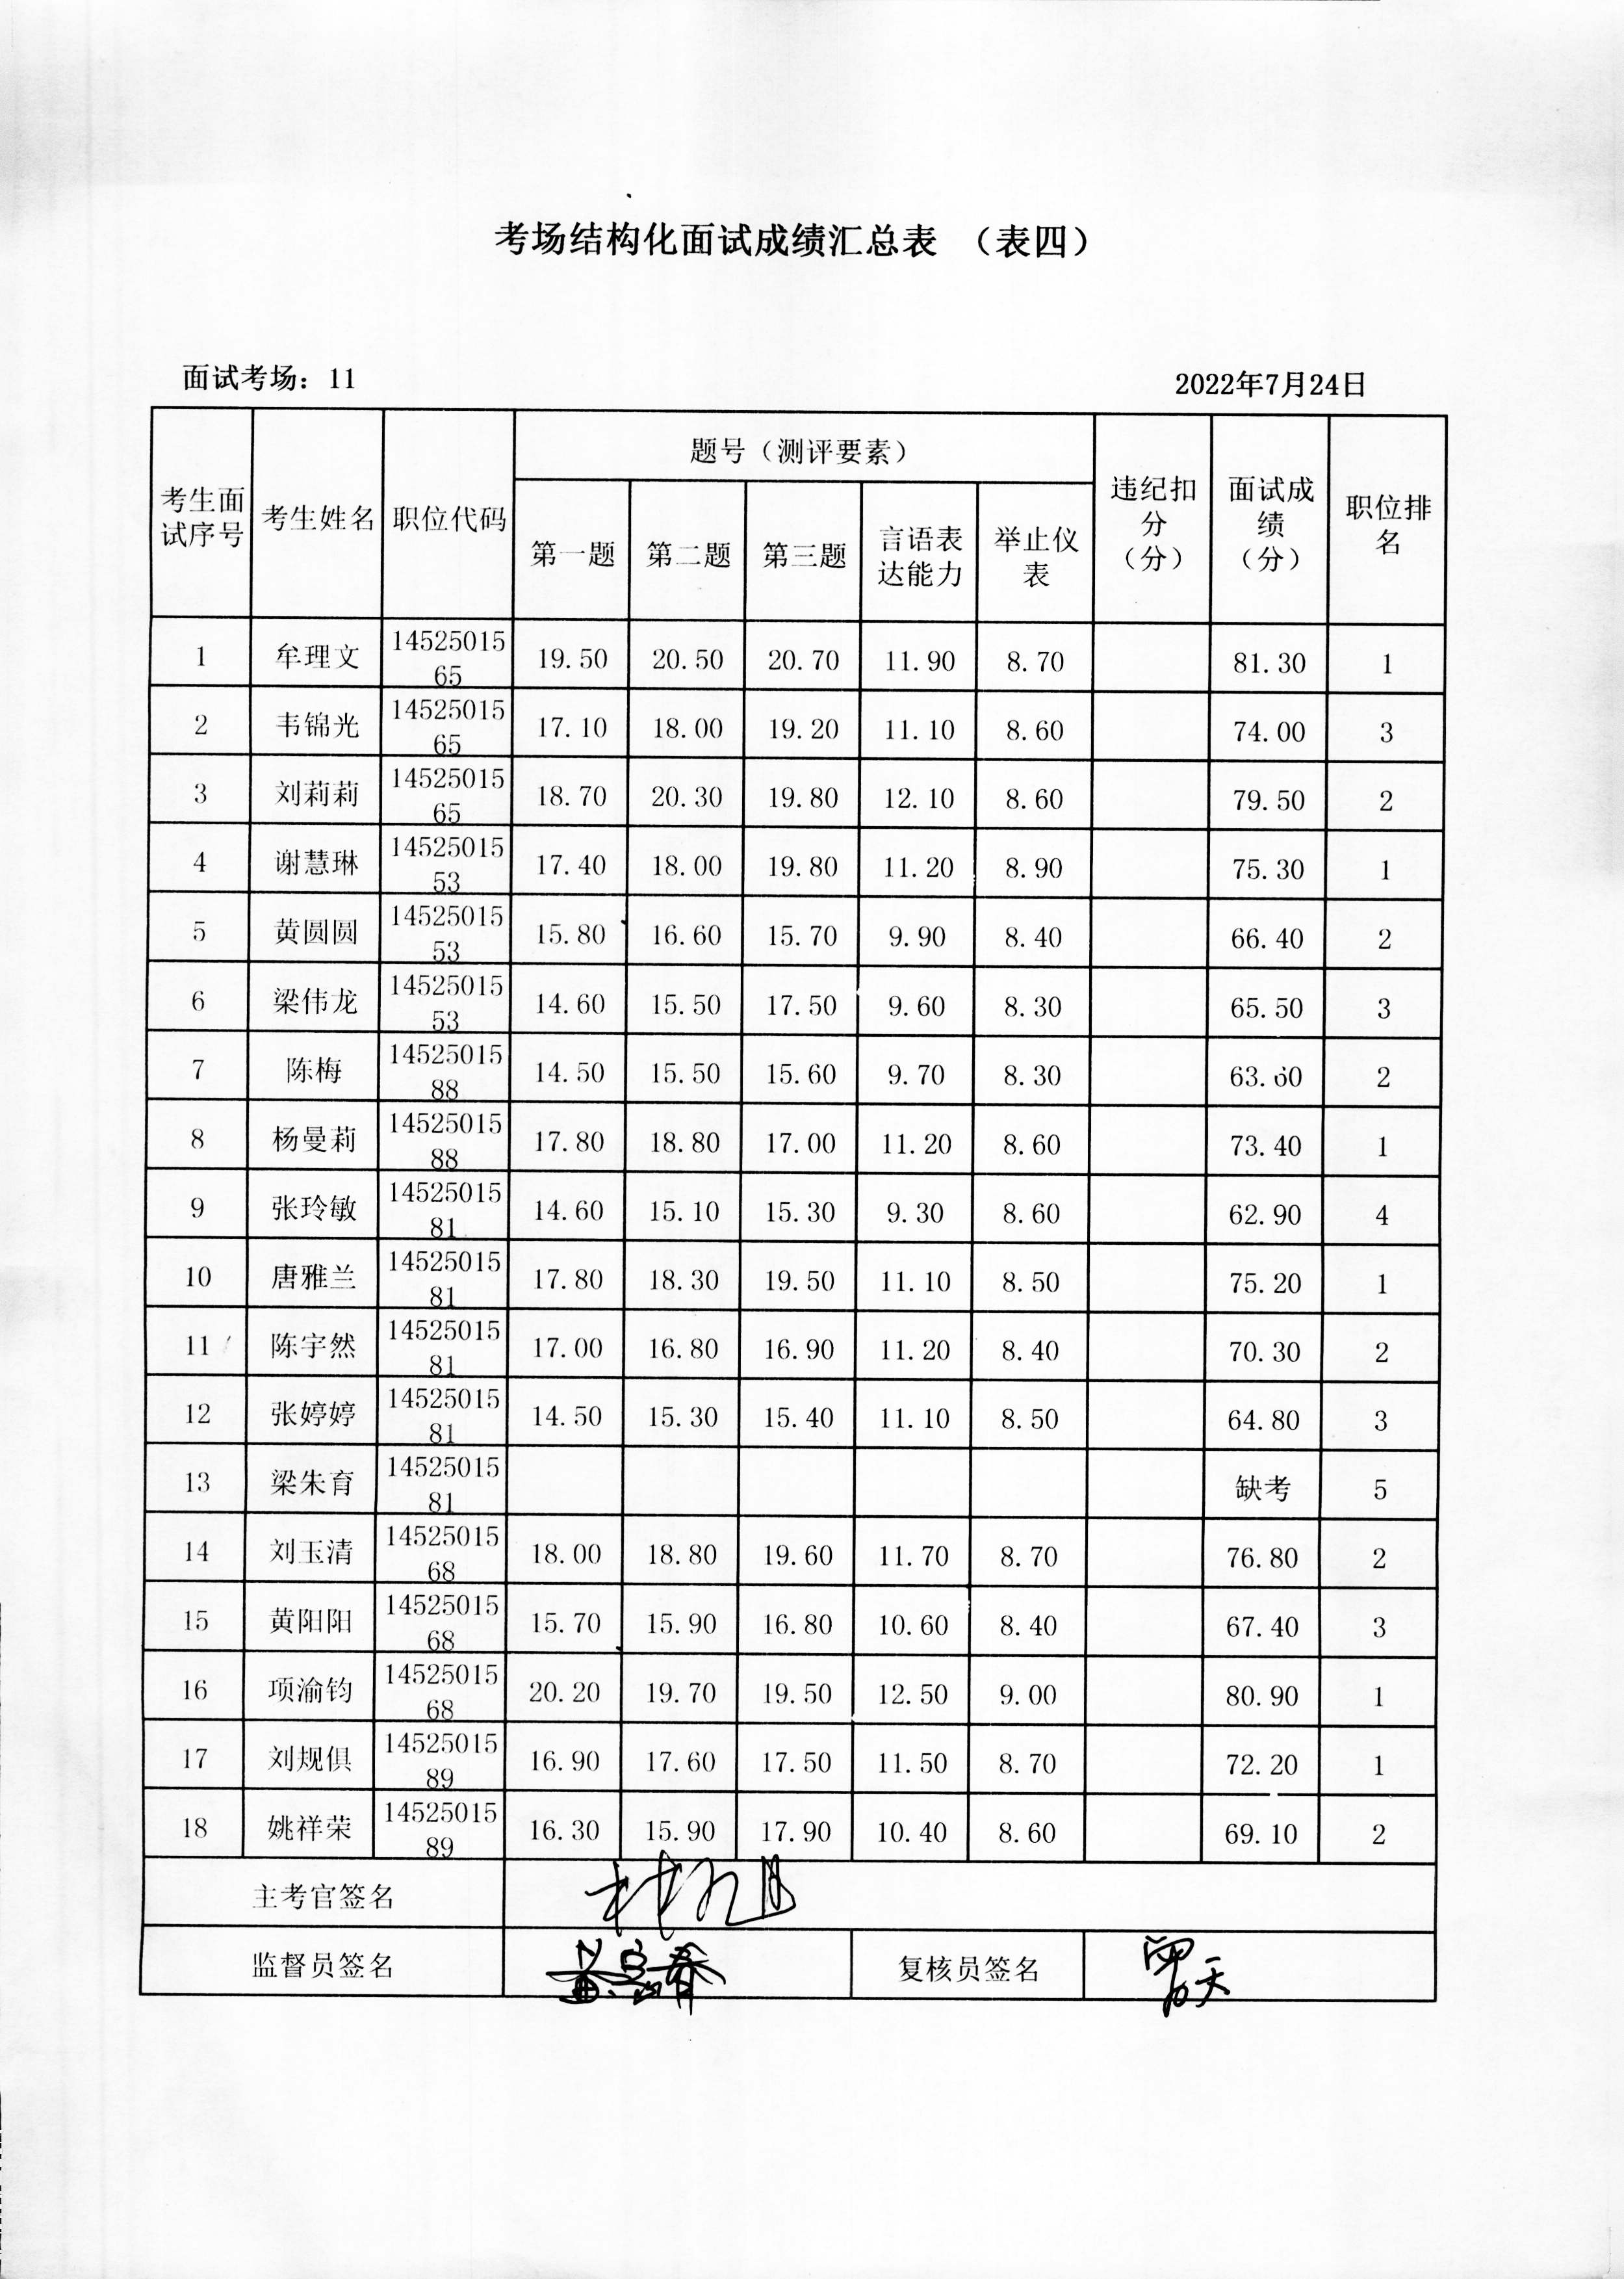 考场结构化面试成绩汇总表 （表四）
面试考场：11 2022年7月24日
考生面试序号 考生姓名 职位代码 题号（测评要素） 违纪扣分（分） 面试成绩（分） 职位排名
第一题 第二题 第三题 言语表达能力 举止仪表
1 牟理文 1452501565 19.50 20.50 20.70 11.90 8.70 81.30 1
2 韦锦光 1452501565 17.10 18.00 19.20 11.10 8.60 74.00 3
3 刘莉莉 1452501565 18.70 20.30 19.80 12.10 8.60 79.50 2
4 谢慧琳 1452501553 17.40 18.00 19.80 11.20 8.90 75.30 1
5 黄圆圆 1452501553 15.80 16.60 15.70 9.90 8.40 66.40 2
6 梁伟龙 1452501553 14.60 15.50 17.50 9.60 8.30 65.50 3
7 陈梅 1452501588 14.50 15.50 15.60 9.70 8.30 63.60 2
8 杨曼莉 1452501588 17.80 18.80 17.00 11.20 8.60 73.40 1
9 张玲敏 1452501581 14.60 15.10 15.30 9.30 8.60 62.90 4
10 唐雅兰 1452501581 17.80 18.30 19.50 11.10 8.50 75.20 1
11 陈宇然 1452501581 17.00 16.80 16.90 11.20 8.40 70.30 2
12 张婷婷 1452501581 14.50 15.30 15.40 11.10 8.50 64.80 3
13 梁朱育 1452501581 缺考 5
14 刘玉清 1452501568 18.00 18.80 19.60 11.70 8.70 76.80 2
15 黄阳阳 1452501568 15.70 15.90 16.80 10.60 8.40 67.40 3
16 项渝钧 1452501568 20.20 19.70 19.50 12.50 9.00 80.90 1
17 刘规俱 1452501589 16.90 17.60 17.50 11.50 8.70 72.20 1
18 姚祥荣 1452501589 16.30 15.90 17.90 10.40 8.60 69.10 2
主考官签名
监督员签名 复核员签名